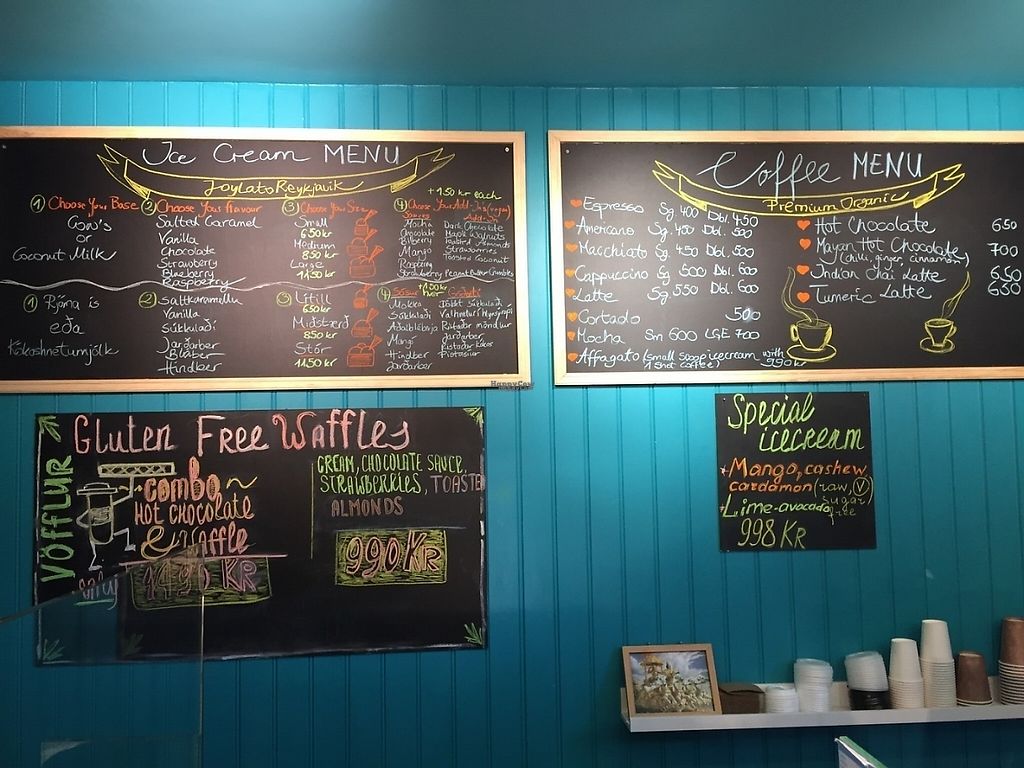 Ice Cream MENU
JoyLato Reykjavik
+150 kr each
① Choose Your Base
Cow's
or
Coconut Milk
② Choose Your flavour
Salted Caramel
Vanilla
Chocolate
Strawberry
Blueberry
Raspberry
③ Choose Your Size
Small
650 kr
Medium
850 kr
Large
1150 kr
④ Choose Your Add-
Sauces
Mocha
Chocolate
Bilberry
Mango
Raspberry
Strawberry
Dark Chocolate
Walnuts
Toasted Almonds
Strawberries
Toasted Coconut
Peanut Butter Crumbles
① Rjóma ís
eða
Kókoshnetumjólk
② Saltkaramellu
Vanilla
Súkkulaði
Jarðarber
Bláber
Hindber
③ Lítill
650 kr
Miðstærð
850 kr
Stór
1150 kr
④ Sósur
Mokka
Súkkulaði
Aðalbláber
Mangó
Hindber
Jarðarber
Dökkt Súkkulaði
Ristaðar möndlur
Jarðarber
Ristaður kókos
Coffee MENU
Premium Organic
Espresso Sg. 400 Dbl. 450
Americano Sg. 450 Dbl. 500
Macchiato Sg. 450 Dbl. 500
Cappuccino Sg. 500 Dbl. 600
Latte Sg. 550 Dbl. 600
Cortado 500
Mocha Sm 600 LGE 700
Affagato (small scoop icecream with
1 shot coffee) 990kr
Hot Chocolate 650
Mayan Hot Chocolate 700
(chili, ginger, cinnamon)
Indian Chai Latte 650
Tumeric Latte 650
HappyCow
VÖFFLUR
Gluten Free Waffles
combo ~
HOT CHOCOLATE
& Waffle
only
1490 KR
CREAM, CHOCOLATE SAUCE,
STRAWBERRIES, TOASTED
ALMONDS
990 KR
Special
icecream
Mango, cashew,
cardamon (raw, Ⓥ
sugar
Lime-avocado free
998 KR